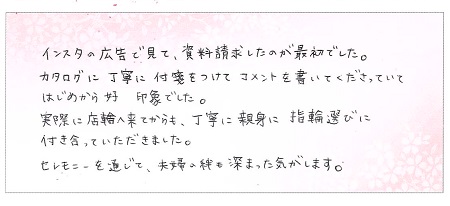 インスタの広告で見て、資料請求したのが最初でした。
カタログに丁寧に付箋をつけてコメントを書いてくださっていて
はじめから好 印象でした。
実際に店舗へ来てからも、丁寧に親身に 指輪選びに
付き合っていただきました。
セレモニーを通じて、夫婦の絆も深まった気がします。